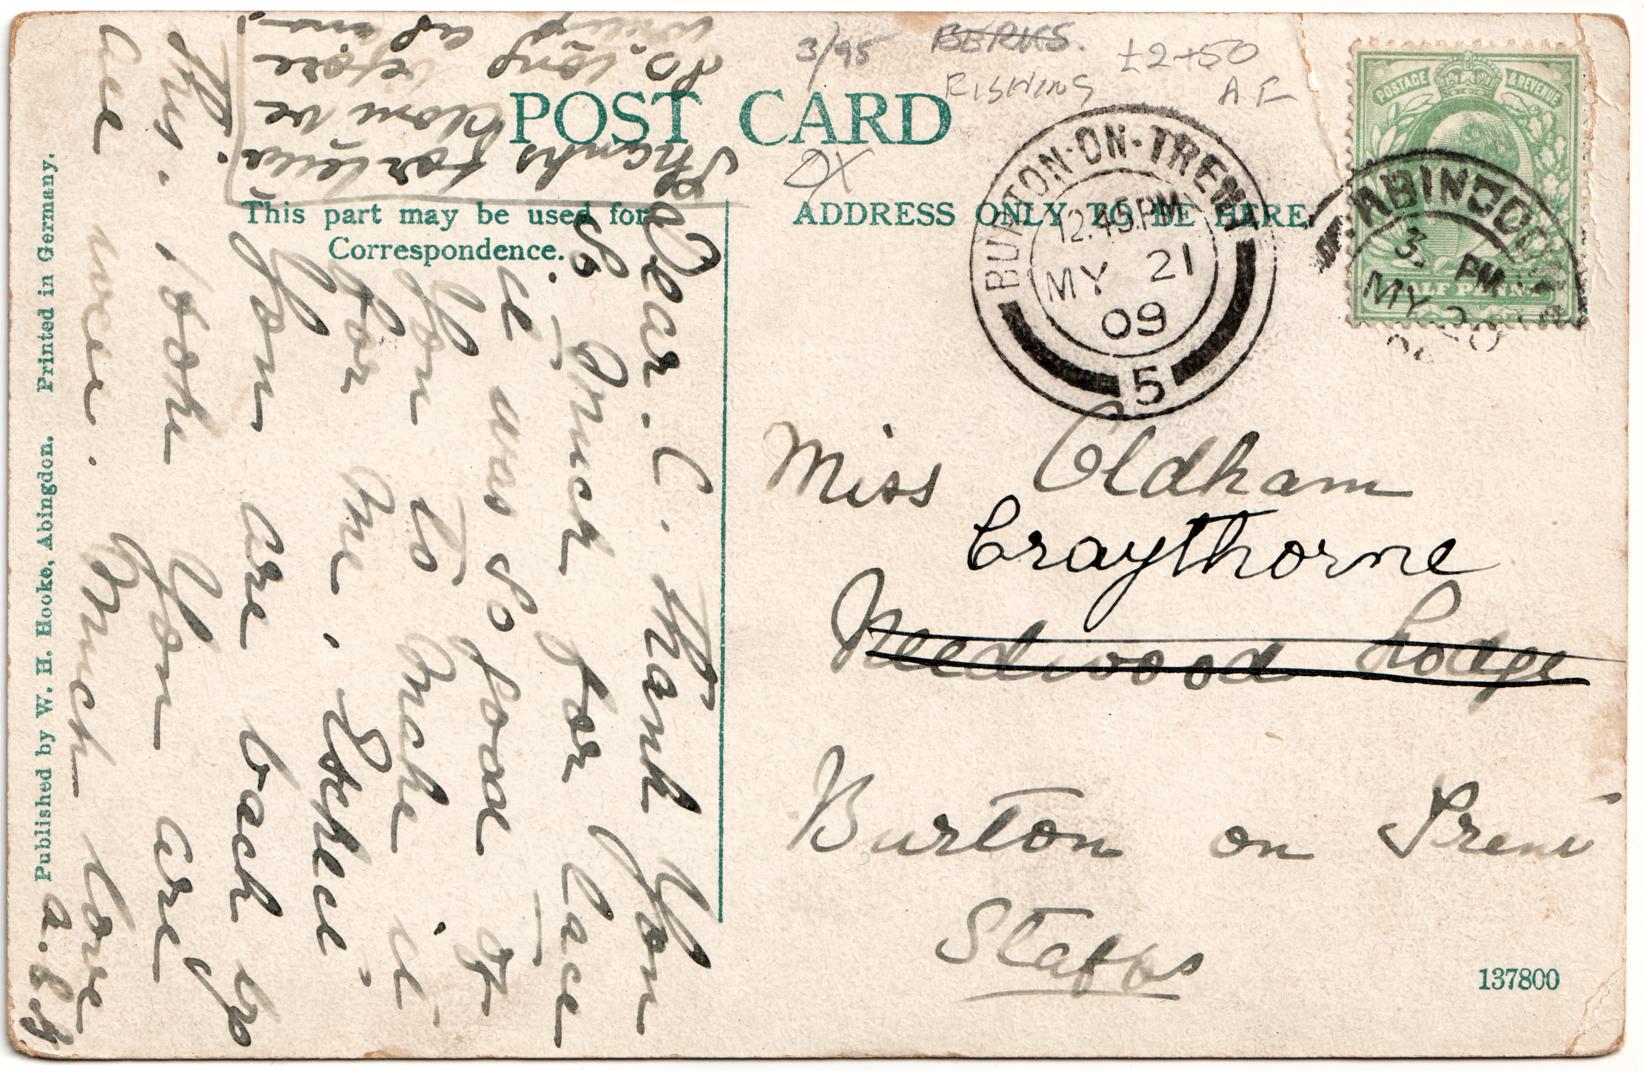 3/95 BERKS. £2+50
FISHING A.F
POST CARD
OX
This part may be used for
Correspondence.
ADDRESS ONLY TO BE HERE
POSTAGE & REVENUE
HALF PENNY
ABINGDON
3 PM
MY 20
09
BURTON-ON-TRENT
12.45 PM
MY 21
09
5
Miss Oldham
Craythorne
Needwood Lodge
Burton on Trent
Staffs
137800
Published by W. H. Hooke, Abingdon. Printed in Germany.
Dear C. Thank you
so much for lace
it was so good of
you to make it
for me. Expect
you are back by
this. Hope you are
all well. Much love
Thanks for
before
So long